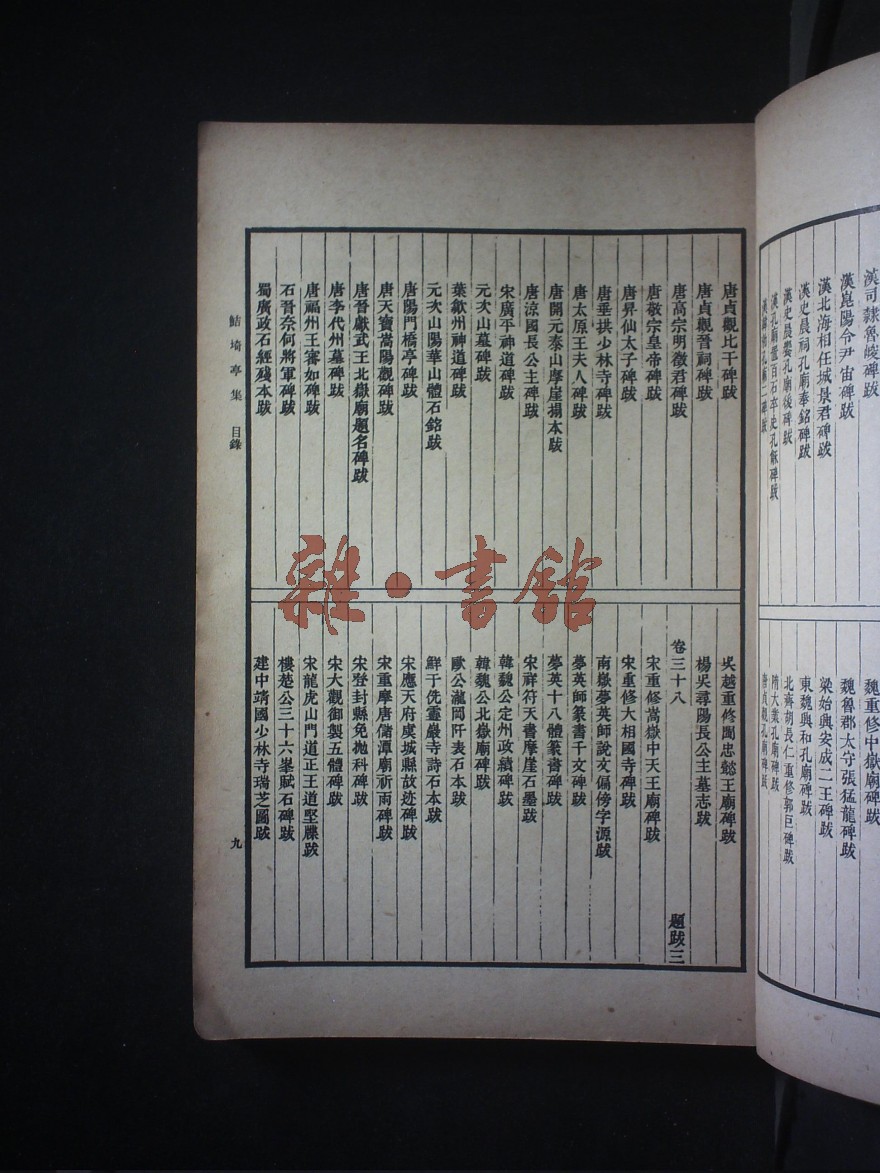 漢司隸魯峻碑跋
漢崑陽令尹宙碑跋
漢北海相任城景君碑跋
漢史晨祠孔廟奉銘碑跋
漢史晨饗孔廟後碑跋
漢孔廟置百石卒史孔龢碑跋
魏重修中嶽廟碑跋
魏魯郡太守張猛龍碑跋
梁始興安成二王碑跋
東魏興和孔廟碑跋
北齊胡長仁重修郭巨碑跋
隋大業孔廟碑跋
唐貞觀孔廟碑跋
唐貞觀比干碑跋
唐貞觀晉祠碑跋
唐高宗明徵君碑跋
唐敬宗皇帝碑跋
唐昇仙太子碑跋
唐垂拱少林寺碑跋
唐太原王夫人碑跋
唐開元泰山摩崖搨本跋
唐涼國長公主碑跋
宋廣平神道碑跋
元次山墓碑跋
葉歙州神道碑跋
元次山陽華山體石銘跋
唐陽門橋亭碑跋
唐天寶嵩陽觀碑跋
唐晉獻武王北嶽廟題名碑跋
唐李代州墓碑跋
唐福州王審知碑跋
石晉奈何將軍碑跋
蜀廣政石經殘本跋
吳越重修閩忠懿王廟碑跋
楊吳尋陽長公主墓志跋
卷三十八
題跋三
宋重修嵩嶽中天王廟碑跋
宋重修大相國寺碑跋
南嶽夢英師說文偏傍字源跋
夢英師篆書千文碑跋
夢英十八體篆書碑跋
宋祥符天書摩崖石墨跋
韓魏公定州政績碑跋
韓魏公北嶽廟碑跋
歐公瀧岡阡表石本跋
鮮于侁靈巖寺詩石本跋
宋應天府虞城縣故迹碑跋
宋重摩唐儲潭廟祈雨碑跋
宋登封縣免拋科碑跋
宋大觀御製五體碑跋
宋龍虎山門道正王道堅牒跋
樓楚公三十六峯賦石碑跋
建中靖國少林寺瑞芝圖跋
鮚埼亭集
目錄
九
雜·書館